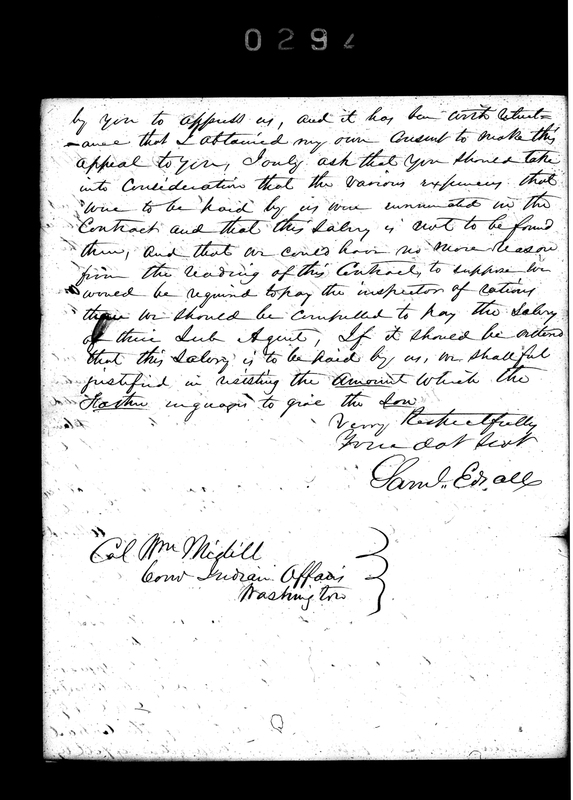 0292
by you to oppress us, and it has been with reluct=
-ance that I obtained my own Consent to make this
appeal to you, I only ask that you should take
into Consideration that the various expenses that
were to be paid by us were enumerated in the
Contract and that this Salery is not to be found
there, and that we could have no more reason
from the reading of this Contract, to suppose we
would be required to pay the inspector of rations
than we should be compelled to pay the Salery
of their Sub Agent, If it should be
that this Salery is to be paid by us, we shall feel
justified in resisting the amount which the
Father engages to give the Son
Verry Respectfully
Your obt Svt
Saml. Edsall
Col Wm Medill
Com Indian Affairs
Washington